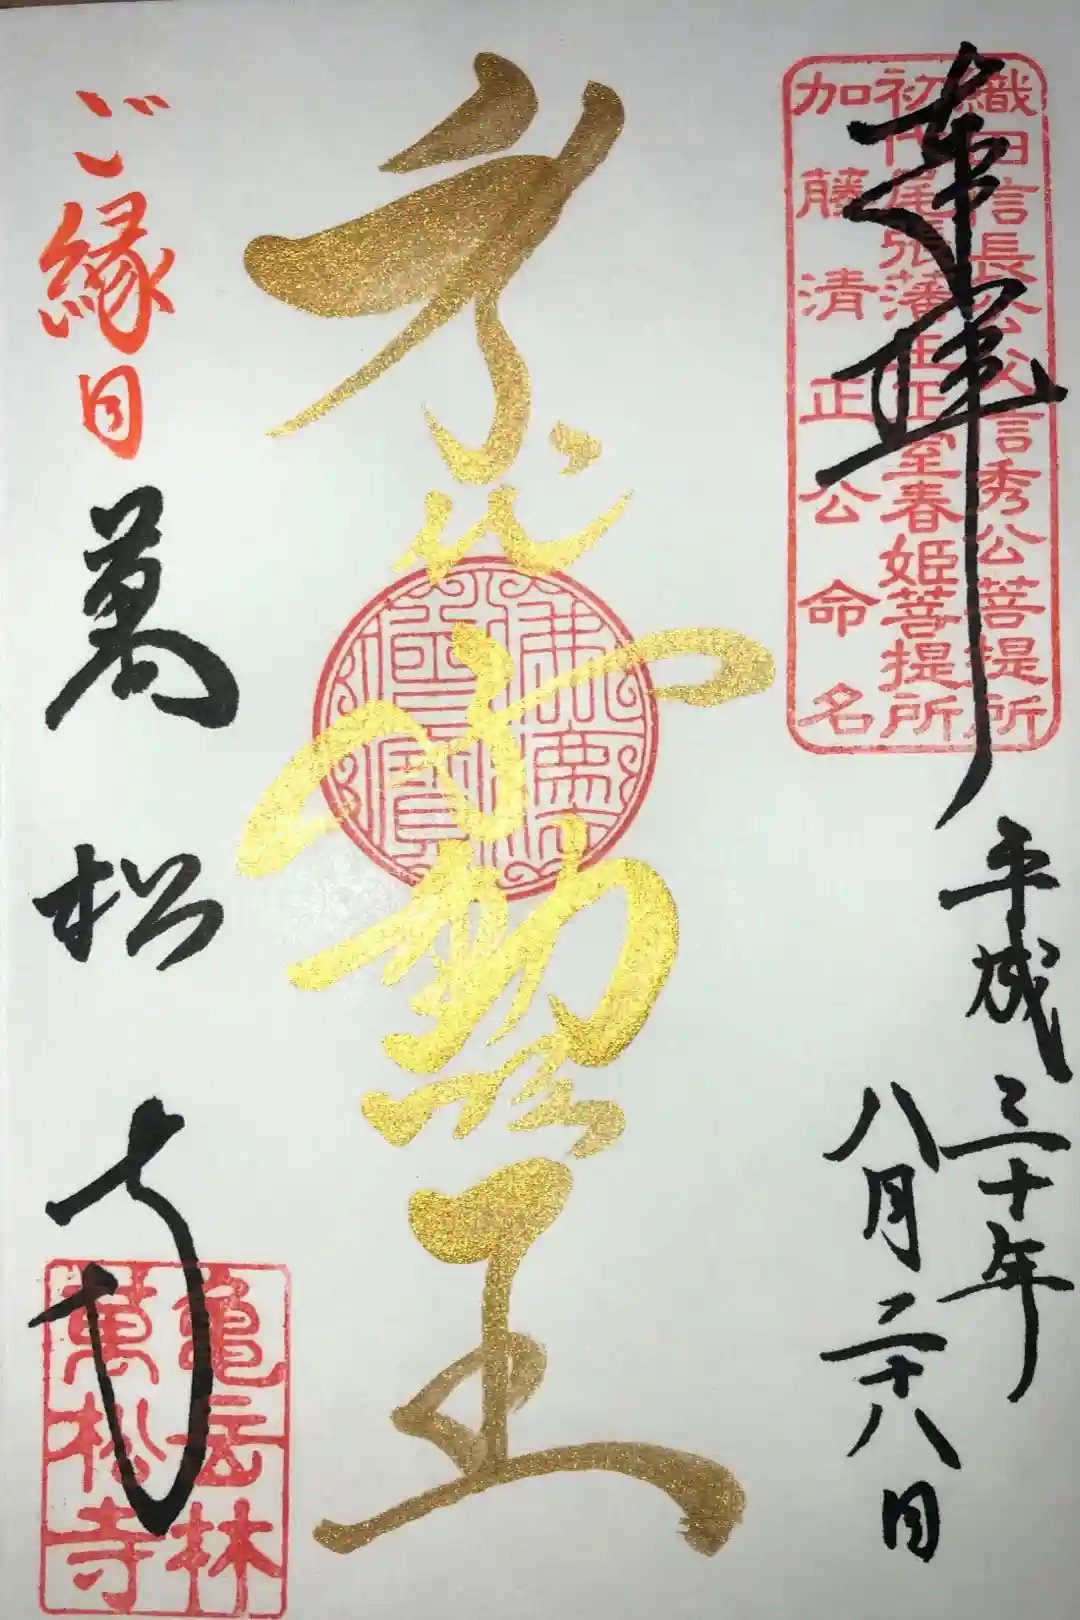 奉拝
織田信長公父信秀公菩提所
初代尾張藩主正室春姫菩提所
加藤清正公命名
平成三十年
八月二十八日
不動明王
ご縁日
萬松寺
亀岳林
萬松寺